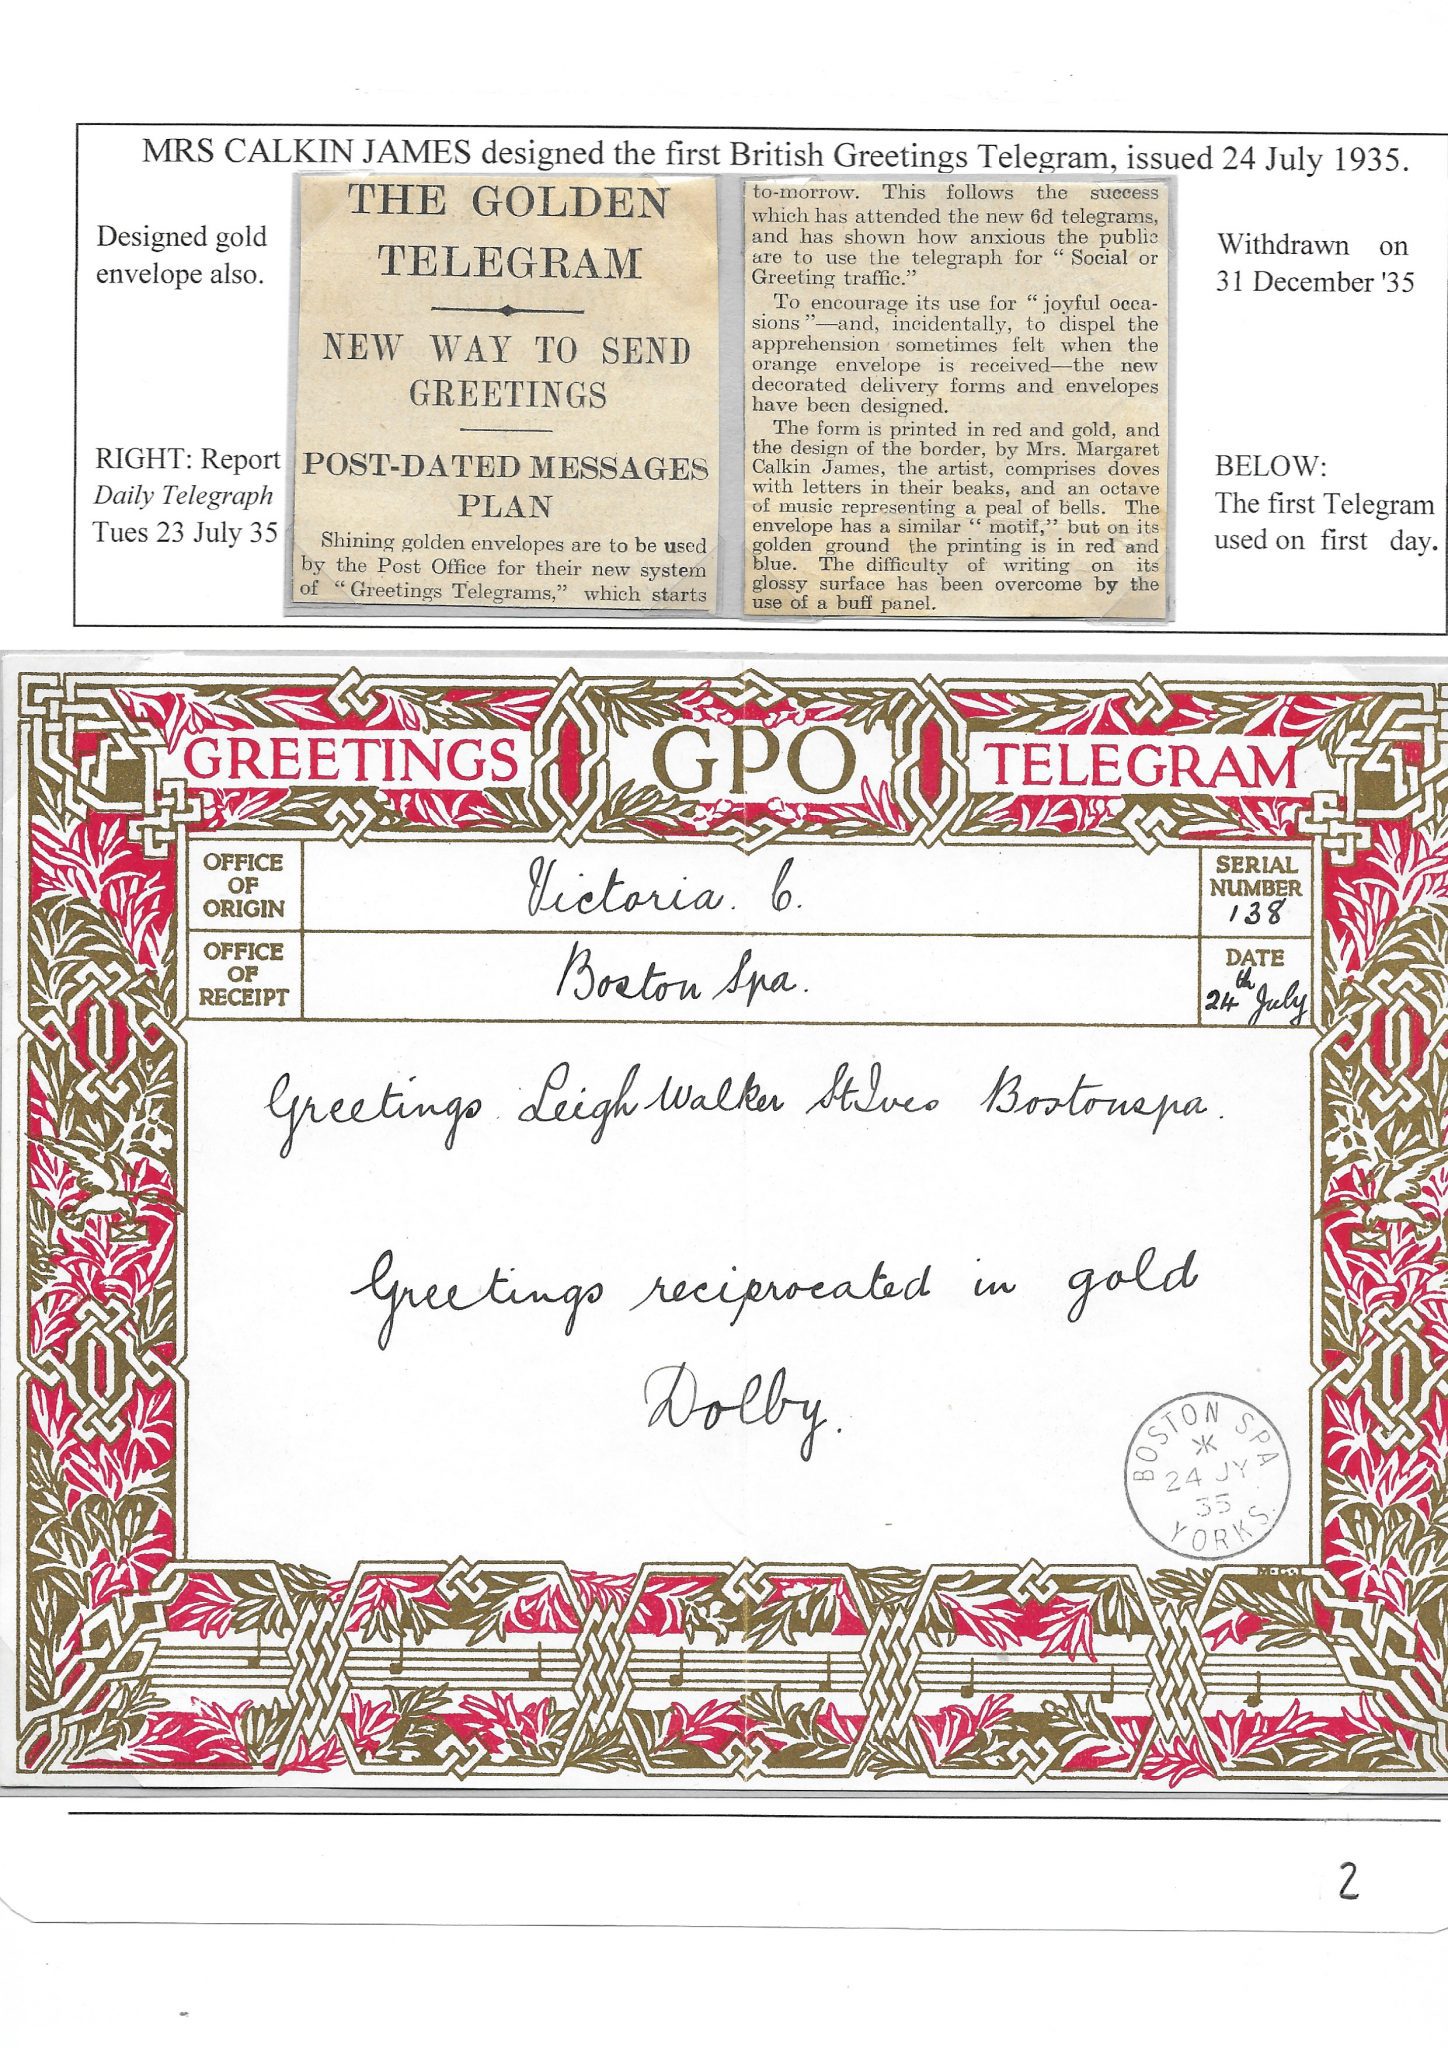 MRS CALKIN JAMES designed the first British Greetings Telegram, issued 24 July 1935.
Designed gold
envelope also.
RIGHT: Report
Daily Telegraph
Tues 23 July 35
THE GOLDEN
TELEGRAM
NEW WAY TO SEND
GREETINGS
POST-DATED MESSAGES
PLAN
Shining golden envelopes are to be used
by the Post Office for their new system
of "Greetings Telegrams," which starts
to-morrow. This follows the success
which has attended the new 6d telegrams,
and has shown how anxious the public
are to use the telegraph for "Social or
Greeting traffic."
To encourage its use for "joyful occa-
sions"—and, incidentally, to dispel the
apprehension sometimes felt when the
orange envelope is received—the new
decorated delivery forms and envelopes
have been designed.
The form is printed in red and gold, and
the design of the border, by Mrs. Margaret
Calkin James, the artist, comprises doves
with letters in their beaks, and an octave
of music representing a peal of bells. The
envelope has a similar "motif," but on its
golden ground the printing is in red and
blue. The difficulty of writing on its
glossy surface has been overcome by the
use of a buff panel.
Withdrawn on
31 December '35
BELOW:
The first Telegram
used on first day.
GREETINGS GPO TELEGRAM
OFFICE
OF
ORIGIN
Victoria. C.
SERIAL
NUMBER
138
OFFICE
OF
RECEIPT
Boston Spa.
DATE
24th July
Greetings Leigh Walker St Ives Bostonspa.
Greetings reciprocated in gold
Dolby.
BOSTON SPA
24 JY
35
YORKS.
2